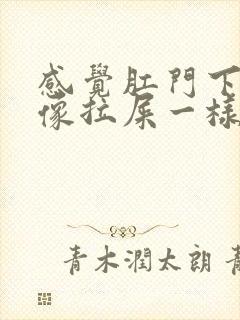 感覺肛門下
像拉屎一樣
青木潤太朗